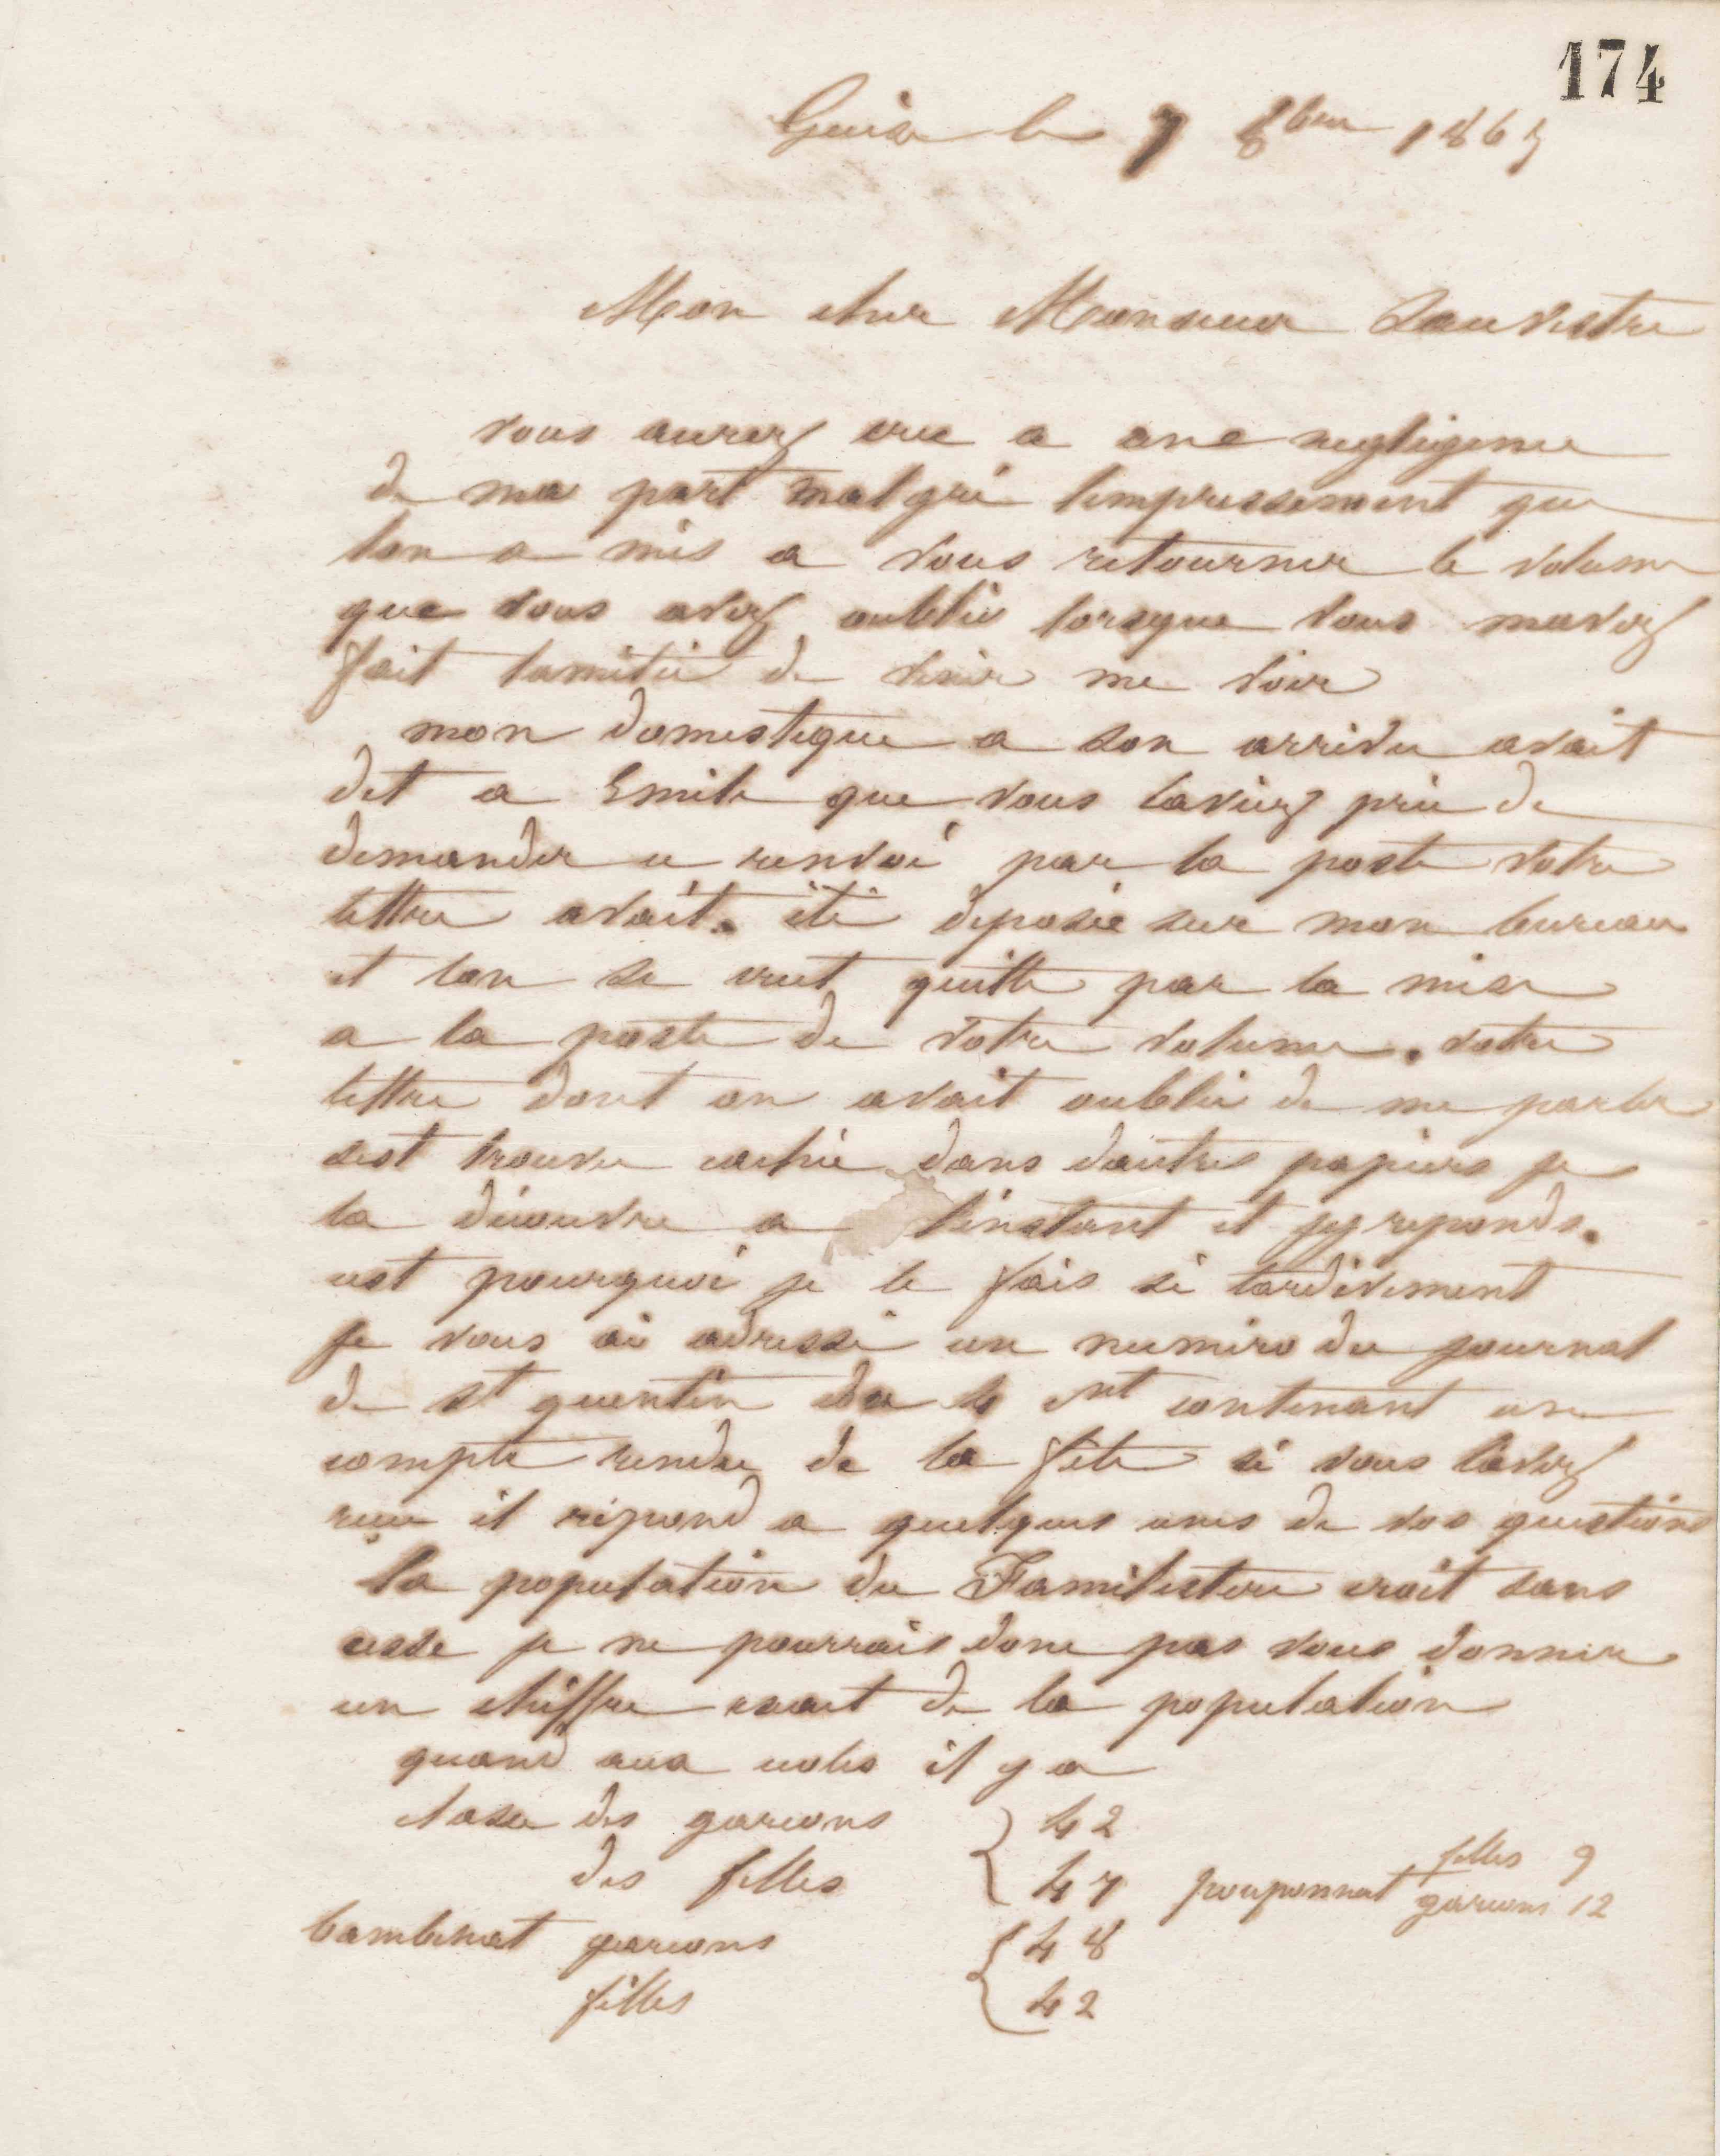 174
Guise le 7 8bre 1865
Mon cher Monsieur Sauvestre
vous aurez cru a une negligence
de ma part malgré lempressement que
lon a mis a vous retourner le volume
que vous avez oublié lorsque vous mavez
fait lamitié de venir me voir
mon domestique a son arrivée avait
dit a Emile que vous laviez prié de
demander ce renvoi par la poste votre
lettre avait été deposée sur mon bureau
et lon se crut quitte par la mise
a la poste de votre volume. votre
lettre dont on avait oublié de me parler
sest trouvée cachée dans dautres papiers je
la découvre a linstant et jy reponds.
cest pourquoi je le fais si tardivement
je vous ai adressé un numéro du journal
de St quentin du 4 cnt contenant un
compte rendu de la fête si vous lavez
recu il répond a quelques unes de vos questions
la population du Familistere croit sans
cesse je ne pourrais donc pas vous donner
un chiffre exact de la population
quand aux ecoles il y a
classe des garcons 42
des filles 47 pouponnat filles 9
garcons 12
bambinat garcons 48
filles 42